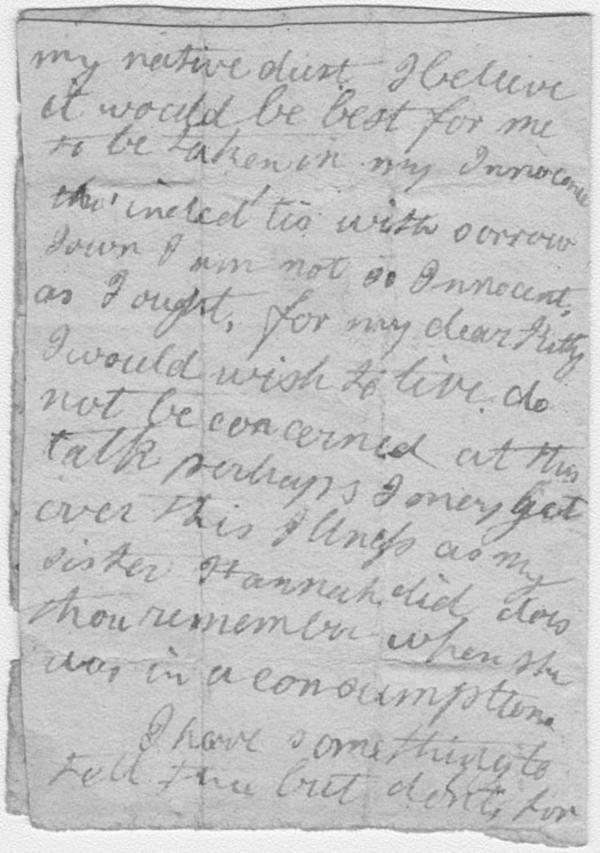 my native dust I believe
it would be best for me
to be taken in my Innocence
tho' indeed tis with sorrow
I own I am not so Innocent,
as I ought, for my dear Kitty
I would wish to live. do
not be concerned at this
talk perhaps I may get
over this Illness as my
sister Hannah did does
thou remember when she
was in a consumptione
I have something to
tell thee but dont, for